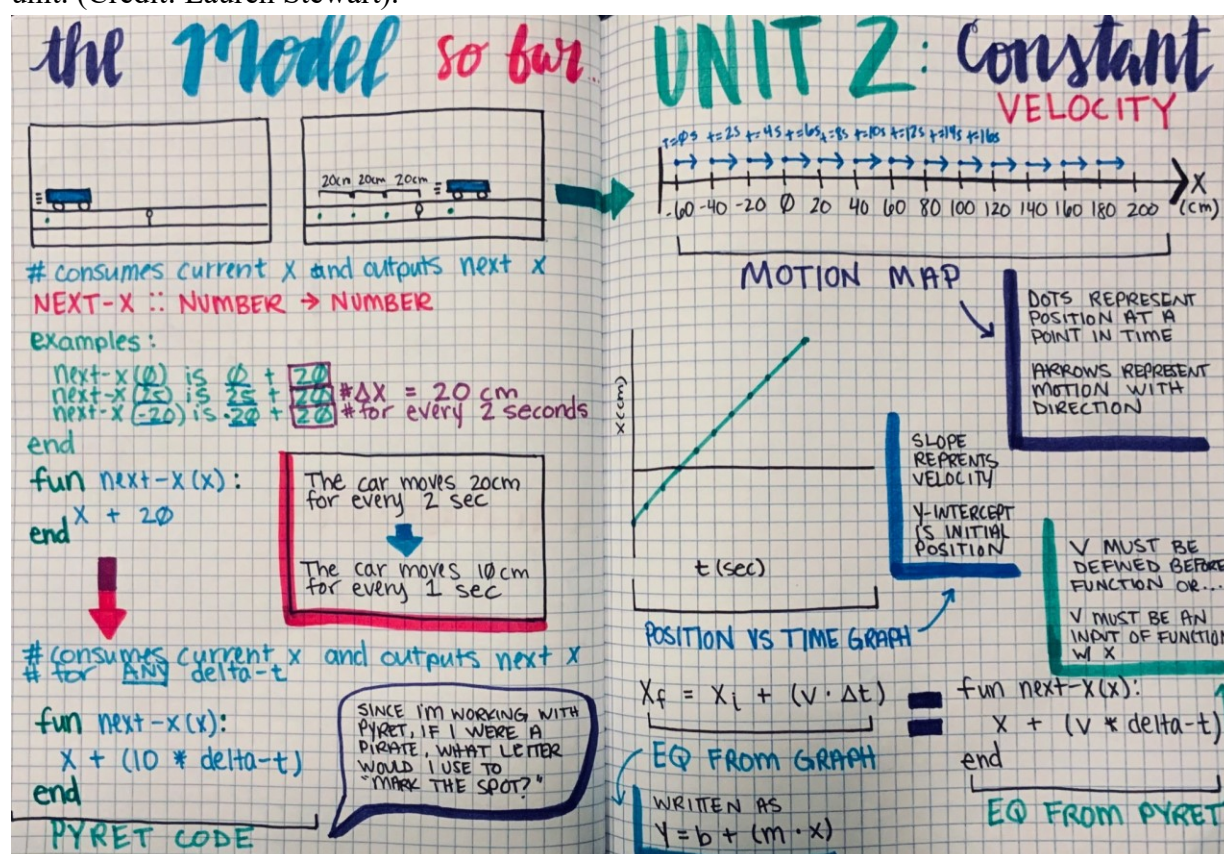 unit. (Credit: Lauren Stewart).
the Model so far...
20cm 20cm 20cm
# consumes current x and outputs next x
NEXT-X :: NUMBER → NUMBER
examples:
next-x(0) is 0 + 20
next-x(25) is 25 + 20 #ΔX = 20 cm
next-x(-20) is -20 + 20 #for every 2 seconds
end
fun next-x(x):
x + 20
end
The car moves 20cm
for every 2 sec
The car moves 10cm
for every 1 sec
# consumes current x and outputs next x
# for ANY delta-t
fun next-x(x):
x + (10 * delta-t)
end
PYRET CODE
SINCE I'M WORKING WITH
PYRET, IF I WERE A
PIRATE, WHAT LETTER
WOULD I USE TO
"MARK THE SPOT?"
UNIT 2: Constant
VELOCITY
t=0s t=2s t=4s t=6s t=8s t=10s t=12s t=14s t=16s
-60 -40 -20 0 20 40 60 80 100 120 140 160 180 200
X
(cm)
MOTION MAP
DOTS REPRESENT
POSITION AT A
POINT IN TIME
ARROWS REPRESENT
MOTION WITH
DIRECTION
x(cm)
t(sec)
SLOPE
REPRENTS
VELOCITY
Y-INTERCEPT
IS INITIAL
POSITION
POSITION VS TIME GRAPH
V MUST BE
DEFINED BEFORE
FUNCTION OR...
V MUST BE AN
INPUT OF FUNCTION
W/ X
Xf = Xi + (V · Δt)
EQ FROM GRAPH
WRITTEN AS
Y = b + (m · x)
=
fun next-x(x):
x + (v * delta-t)
end
EQ FROM PYRET